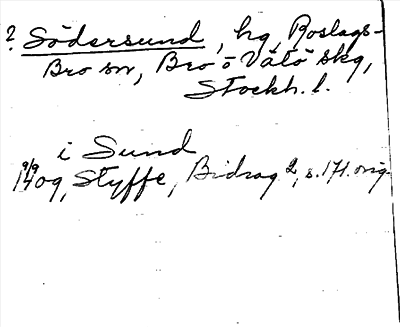 ? Södersund, hg, Roslags-
Bro sn, Bro o Vätö skg,
Stockh. l.
i Sund
9/9
1409, Styffe, Bidrag 2, s. 171. orig